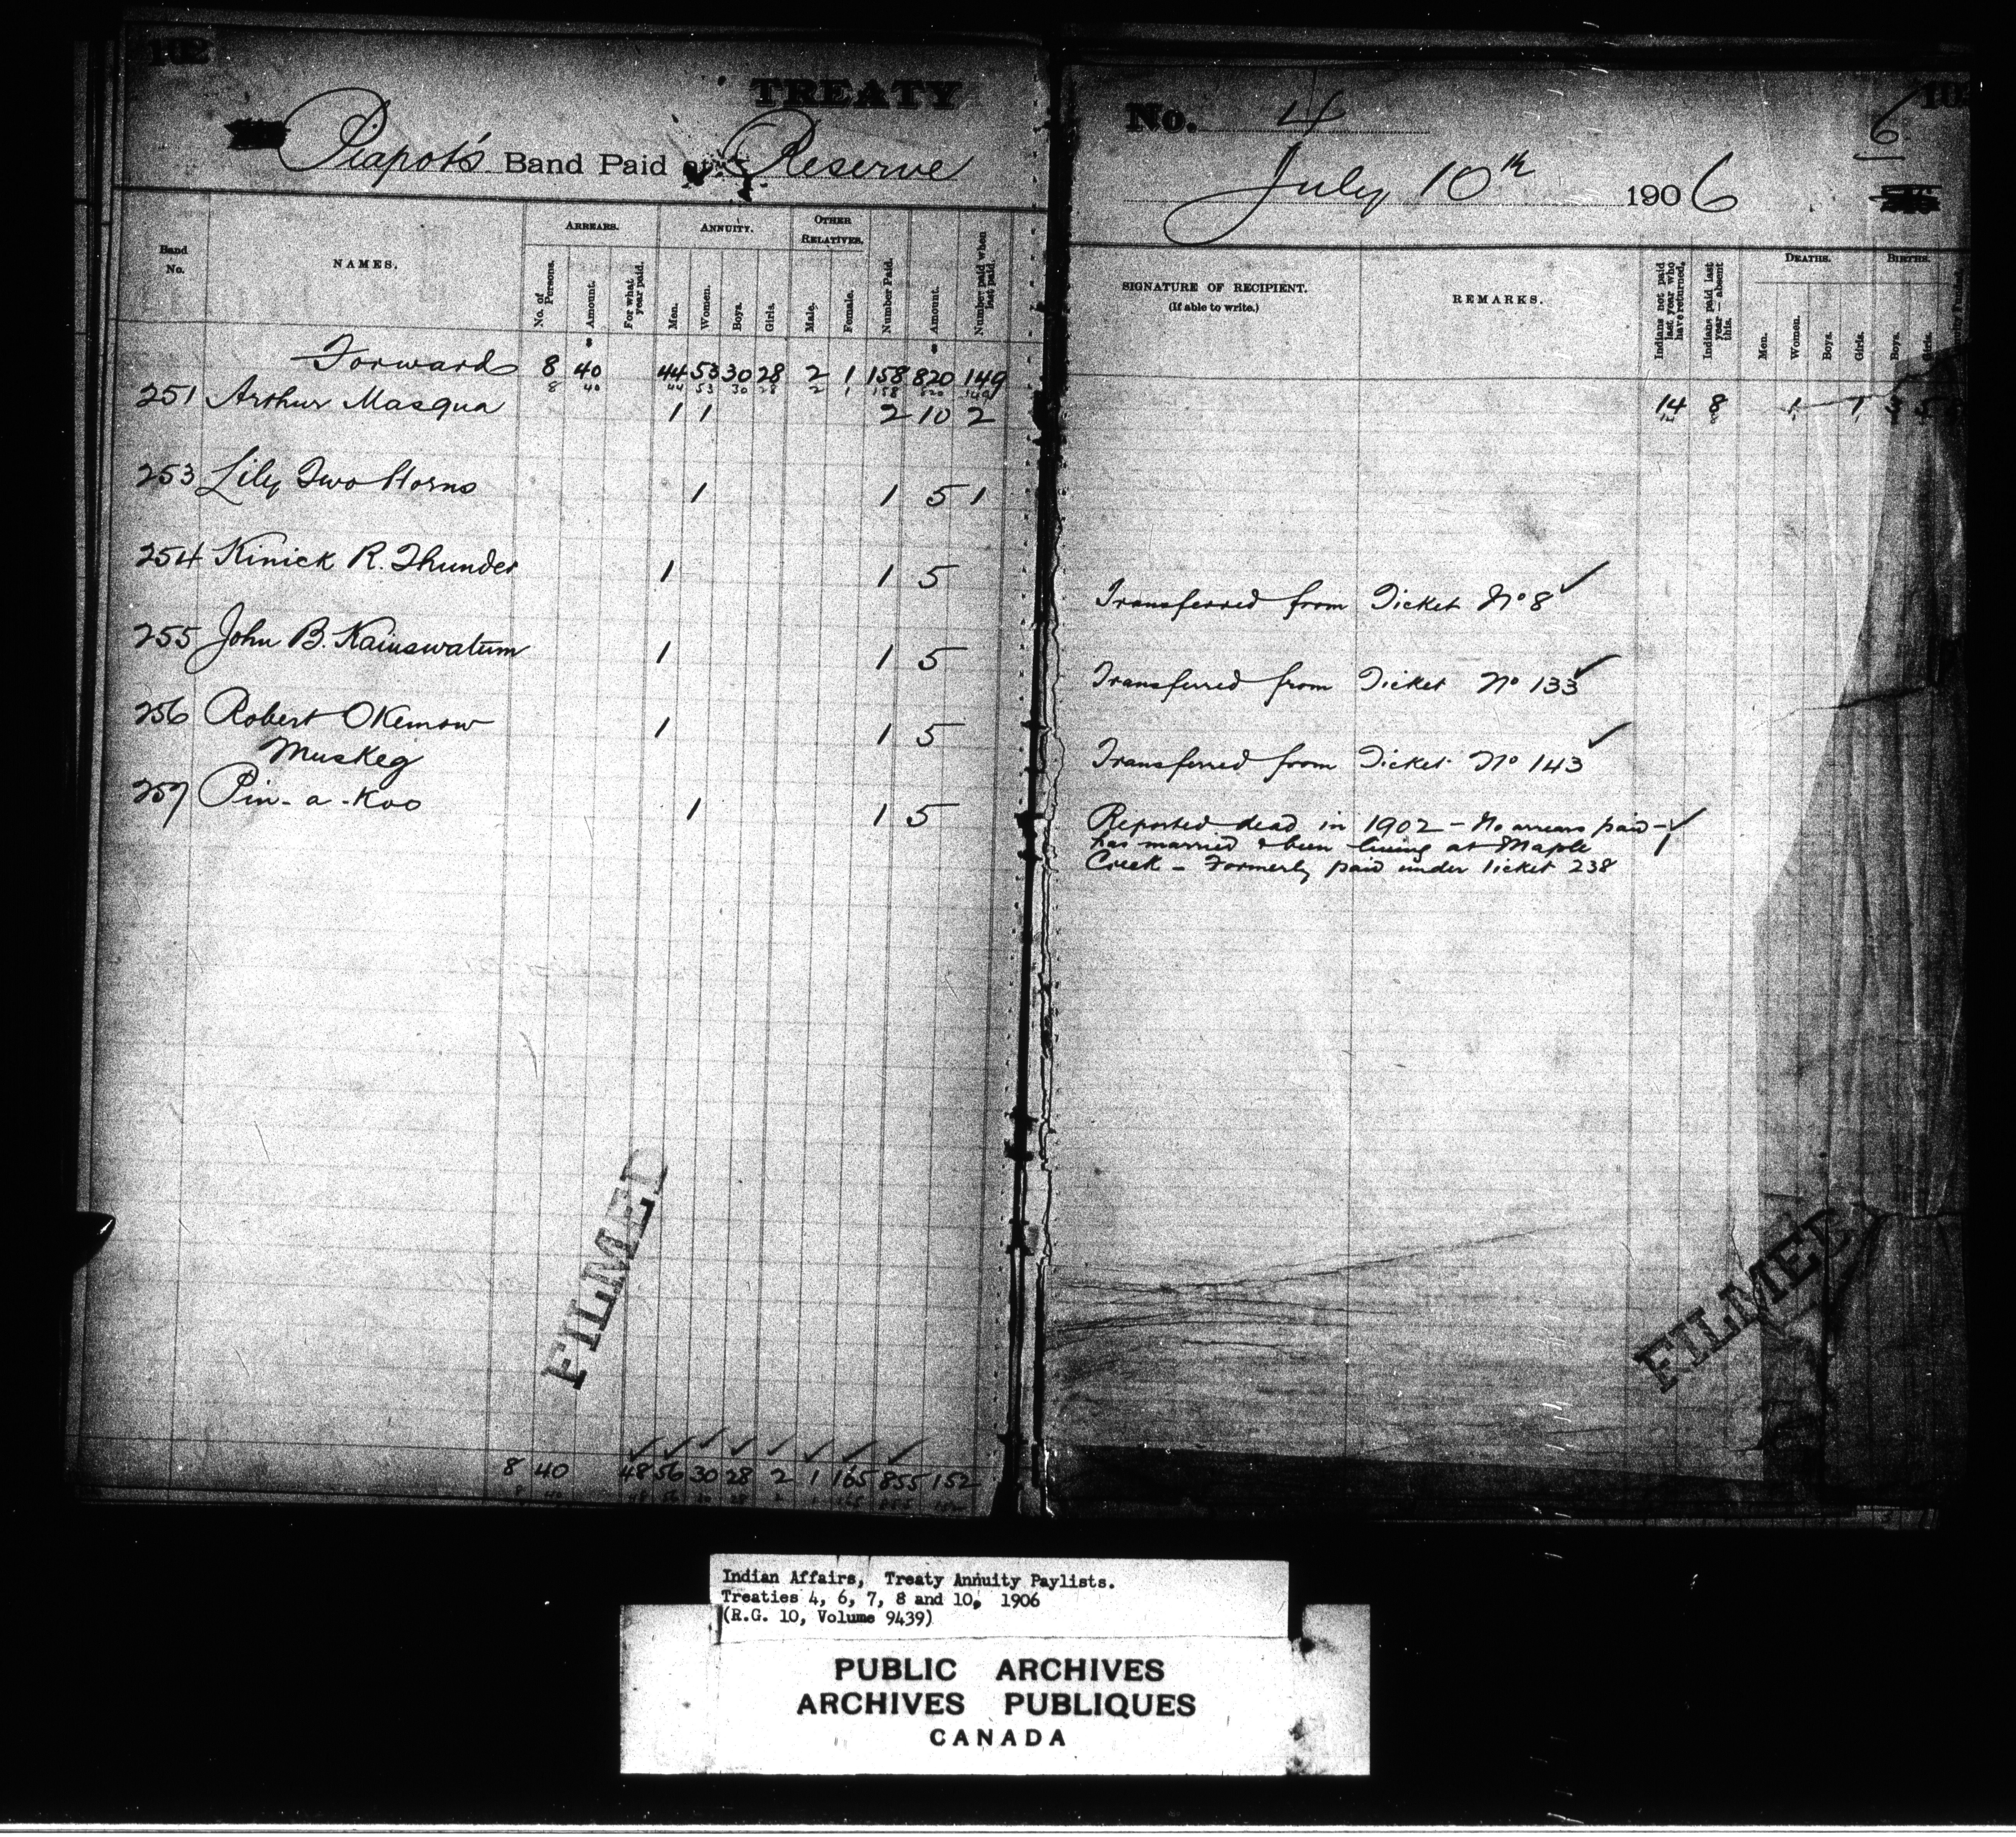 102
TREATY
Piapot's Band Paid at Reserve
Band No.
NAMES.
ARREARS.
No. of Persons.
Amount.
For what year paid.
ANNUITY.
Men.
Women.
Boys.
Girls.
OTHER RELATIVES.
Male.
Female.
Number Paid.
Amount.
Number paid when last paid.
Forward 8 40 44 53 30 28 2 1 158 820 149
8 40 44 53 30 28 2 1 158 820 149
251 Arthur Masqua 1 1 2 10 2
253 Lily Two Horns 1 1 5 1
254 Kinick R. Thunder 1 1 5
255 John B. Kaiuswatum 1 1 5
256 Robert Okemow 1 1 5
Muskeg
257 Pin-a-Koo 1 1 5
FILMED
8 40 48 56 30 28 2 1 165 855 152
8 40 48 56 30 28 2 1 165 855 152
No. 4
6
July 10th 1906
SIGNATURE OF RECIPIENT.
(If able to write.)
REMARKS.
Indians not paid last year who have returned.
Indians paid last year—absent this.
DEATHS.
Men.
Women.
Boys.
Girls.
BIRTHS.
Boys.
Girls.
14 8 1 1
Transferred from Ticket No 8 ✓
Transferred from Ticket No 133 ✓
Transferred from Ticket No 143 ✓
Reported dead in 1902 - No arrears paid - ✓
has married & been living at Maple 1
Creek - Formerly paid under ticket 238
FILMED
Indian Affairs, Treaty Annuity Paylists.
Treaties 4, 6, 7, 8 and 10, 1906
(R.G. 10, Volume 9439)
PUBLIC ARCHIVES
ARCHIVES PUBLIQUES
CANADA